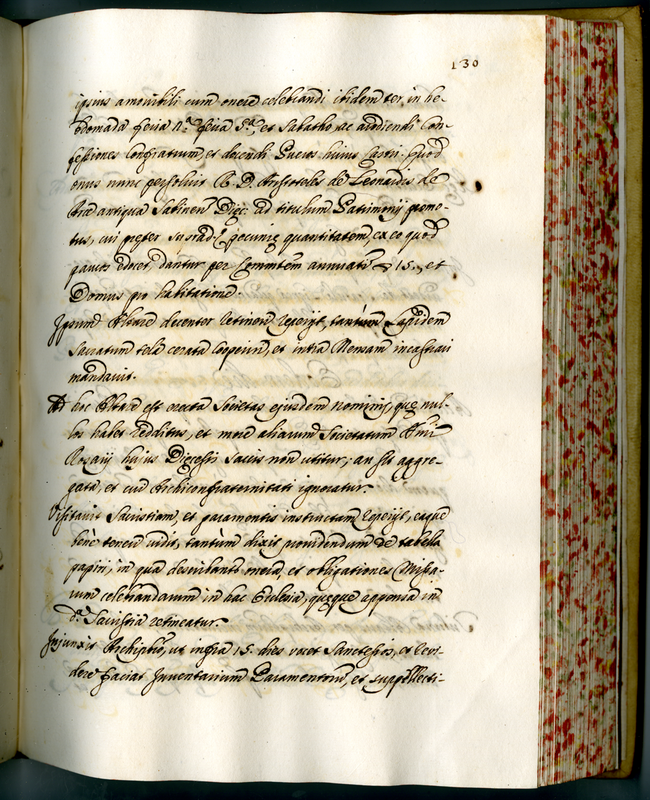 130
ipsius amovibili cum onere celebrandi ibidem ter, in he-
bdomada feria 2.ª feria 5.ª et Sabatho, ac audiendi con-
fessiones Confratrum, et docendi Pueros huius Castri. Quod
onus nunc persolvit R. D. Aristoteles de Leonardis de
Arce antiqua Sabinen Dięc: ad titulum Patrimonij promo-
tus, cui pręter pecunię quantitatem, ex eo quod
pueros edocet, dantur per Com̃tem annuati 15., et
Domus pro habitatione
Ipsum Altare decenter retineri reperijt, tantum Lapidem
Sacratum tela cerata cooperiri, et intra Mensam incastrari
mandavit.
Ad hoc Altare est erecta Societas eiusdem nominis, quę nul-
los habet redditus, et more aliarum Societatum
Rosarij huius Dięcesis Saccis non utitur; an sit aggre-
gata, et cui Archiconfraternitati ignoratur.
Visitavit Sacristiam, et paramentis instructam reperijt, eaque
bene teneri vidit, tantùm dixit providendum de tabella
papiri, in qua describantur onera, et obligationes Missa-
rum celebrandarum in hac Ecclesia, quęque appensa in
d.ª Sacristia retineatur.
Iniunxit Archipr̃o, ut infra 15. dies
faciat Inventarium Paramentorum, et suppellecti-